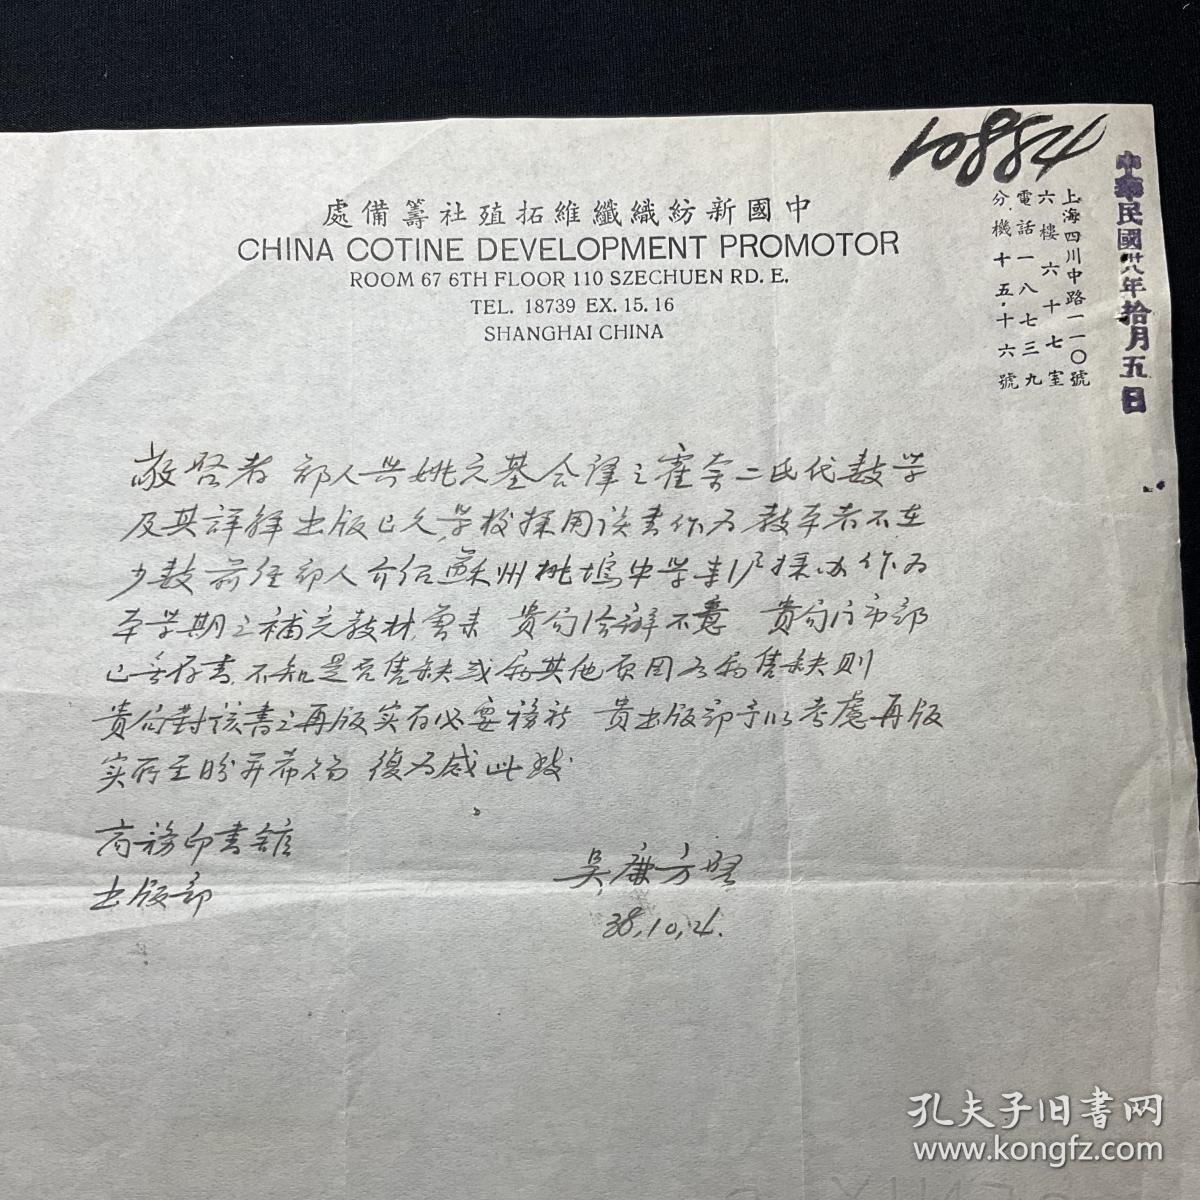 10884
中華民國卅八年拾月五日
處備籌社殖拓維纖織紡新國中
CHINA COTINE DEVELOPMENT PROMOTOR
ROOM 67 6TH FLOOR 110 SZECHUEN RD. E.
TEL. 18739 EX. 15. 16
SHANGHAI CHINA
上海四川中路一一〇號
六樓六十七室
電話一八七三九
分機十五·十六號
敬啓者 鄙人與姚元基合譯之霍奈二氏代數学
及其詳解出版已久学校採用该書作为教本者不在
少数 前经鄙人介绍蘇州桃塢中学 採办作为
本学期之補充教材曾来 貴局洽辦不意 貴局门市部
已無存書不知是否售缺或为其他原因如为售缺则
貴局對该書之再版实有必要務祈 貴出版部予以考慮再版
实所至盼并希賜復为感此致
商務印書館
出版部
吴廉方啓
38,10,4.
孔夫子旧书网
www.kongfz.com